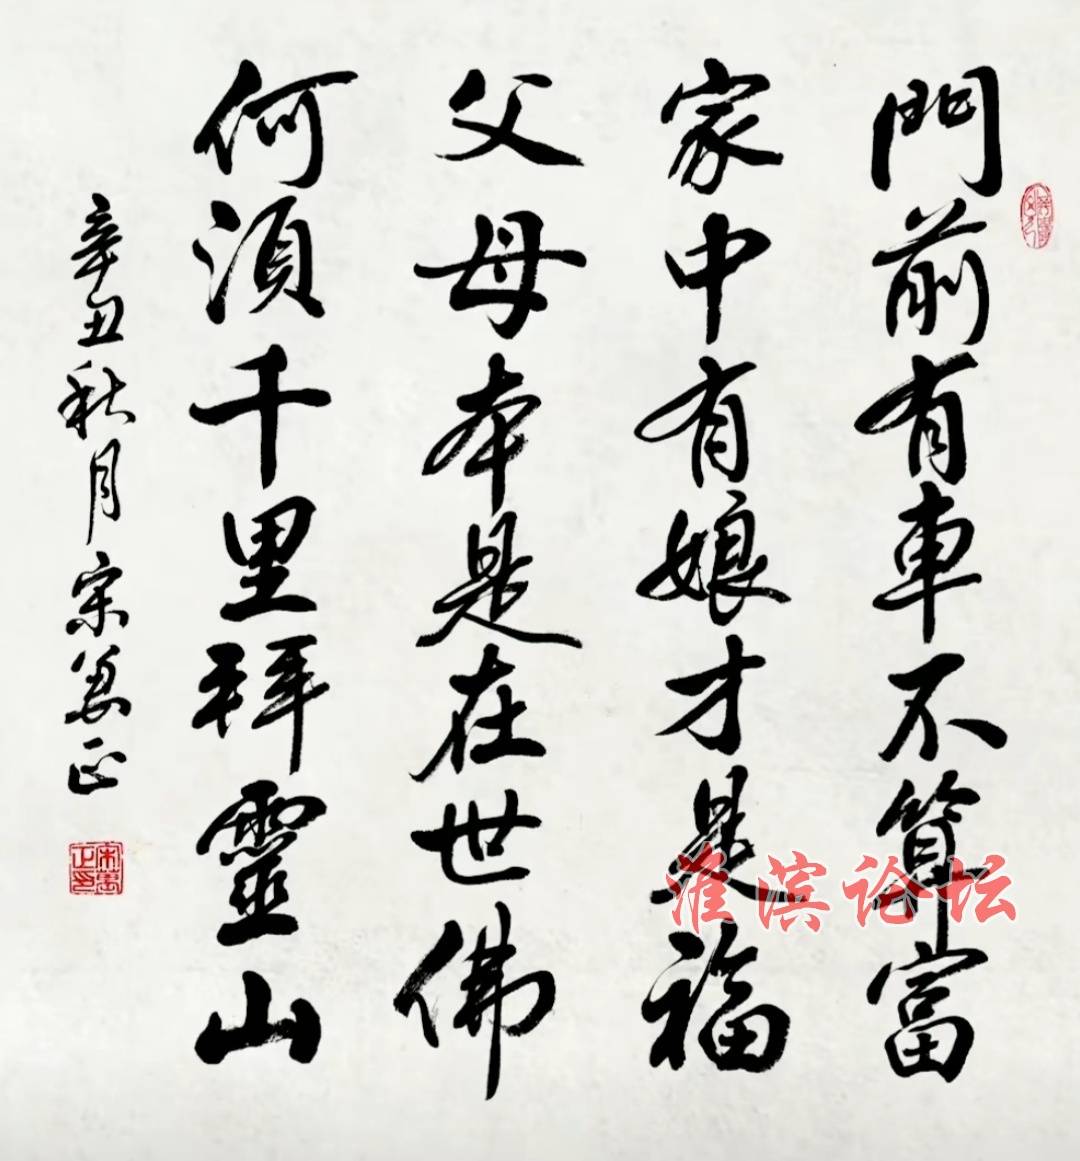 門前有車不算富
家中有娘才是福
父母本是在世佛
何須千里拜靈山
辛丑秋月宋萬正
宋萬正印
淮滨论坛